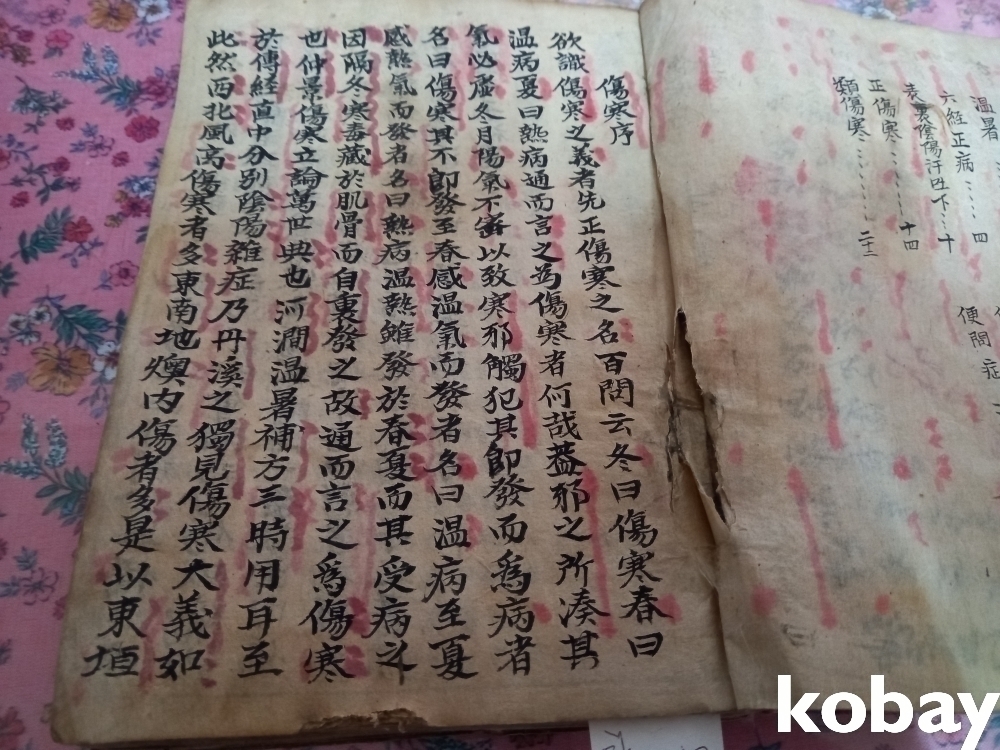 温暑
六經正病……四
表裏陰陽汗吐下…十
正傷寒……十四
類傷寒……二十三
便閟症
傷寒序
欲識傷寒之義者先正傷寒之名百問云冬曰傷寒春曰
温病夏曰熱病通而言之為傷寒者何哉蓋邪之所湊其
氣必虛冬月陽氣不密以致寒邪觸犯其即發而爲病者
名曰傷寒其不即發至春感温氣而發者名曰温病至夏
感熱氣而發者名曰熱病温熱雖發於春夏而其受病之
因隔冬寒毒藏於肌骨而自裏發之故通而言之爲傷寒
也仲景傷寒立論萬世典也河澗温暑補方三時用耳至
於傳經直中分別陰陽雜症乃丹溪之獨見傷寒大義如
此然西北風高傷寒者多東南地燠內傷者多是以東垣
kobay